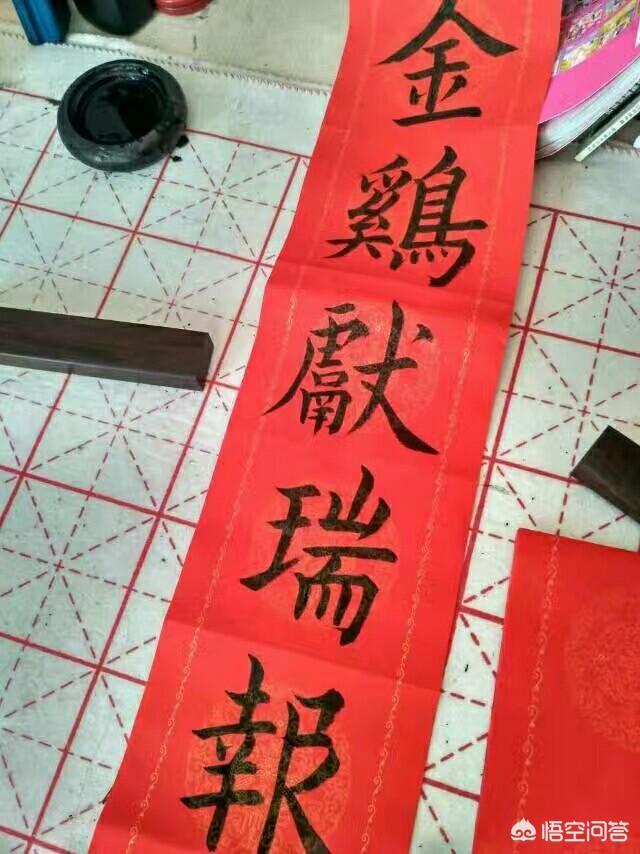 金鷄獻瑞報
悟空问答